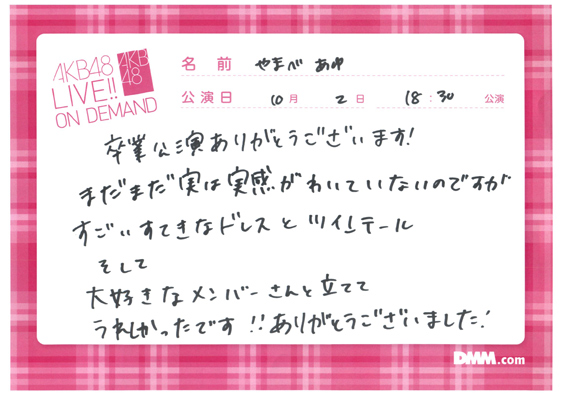 AKB48
LIVE!!
ON DEMAND
AKB
48
名前 やまべ あゆ
公演日 10月 2日 18:30 公演
卒業公演ありがとうございます!
まだまだ実は実感がわいていないのですが
すごいすてきなドレスとツインテール
そして
大好きなメンバーさんと立てて
うれしかったです!!ありがとうございました!
DMM.com